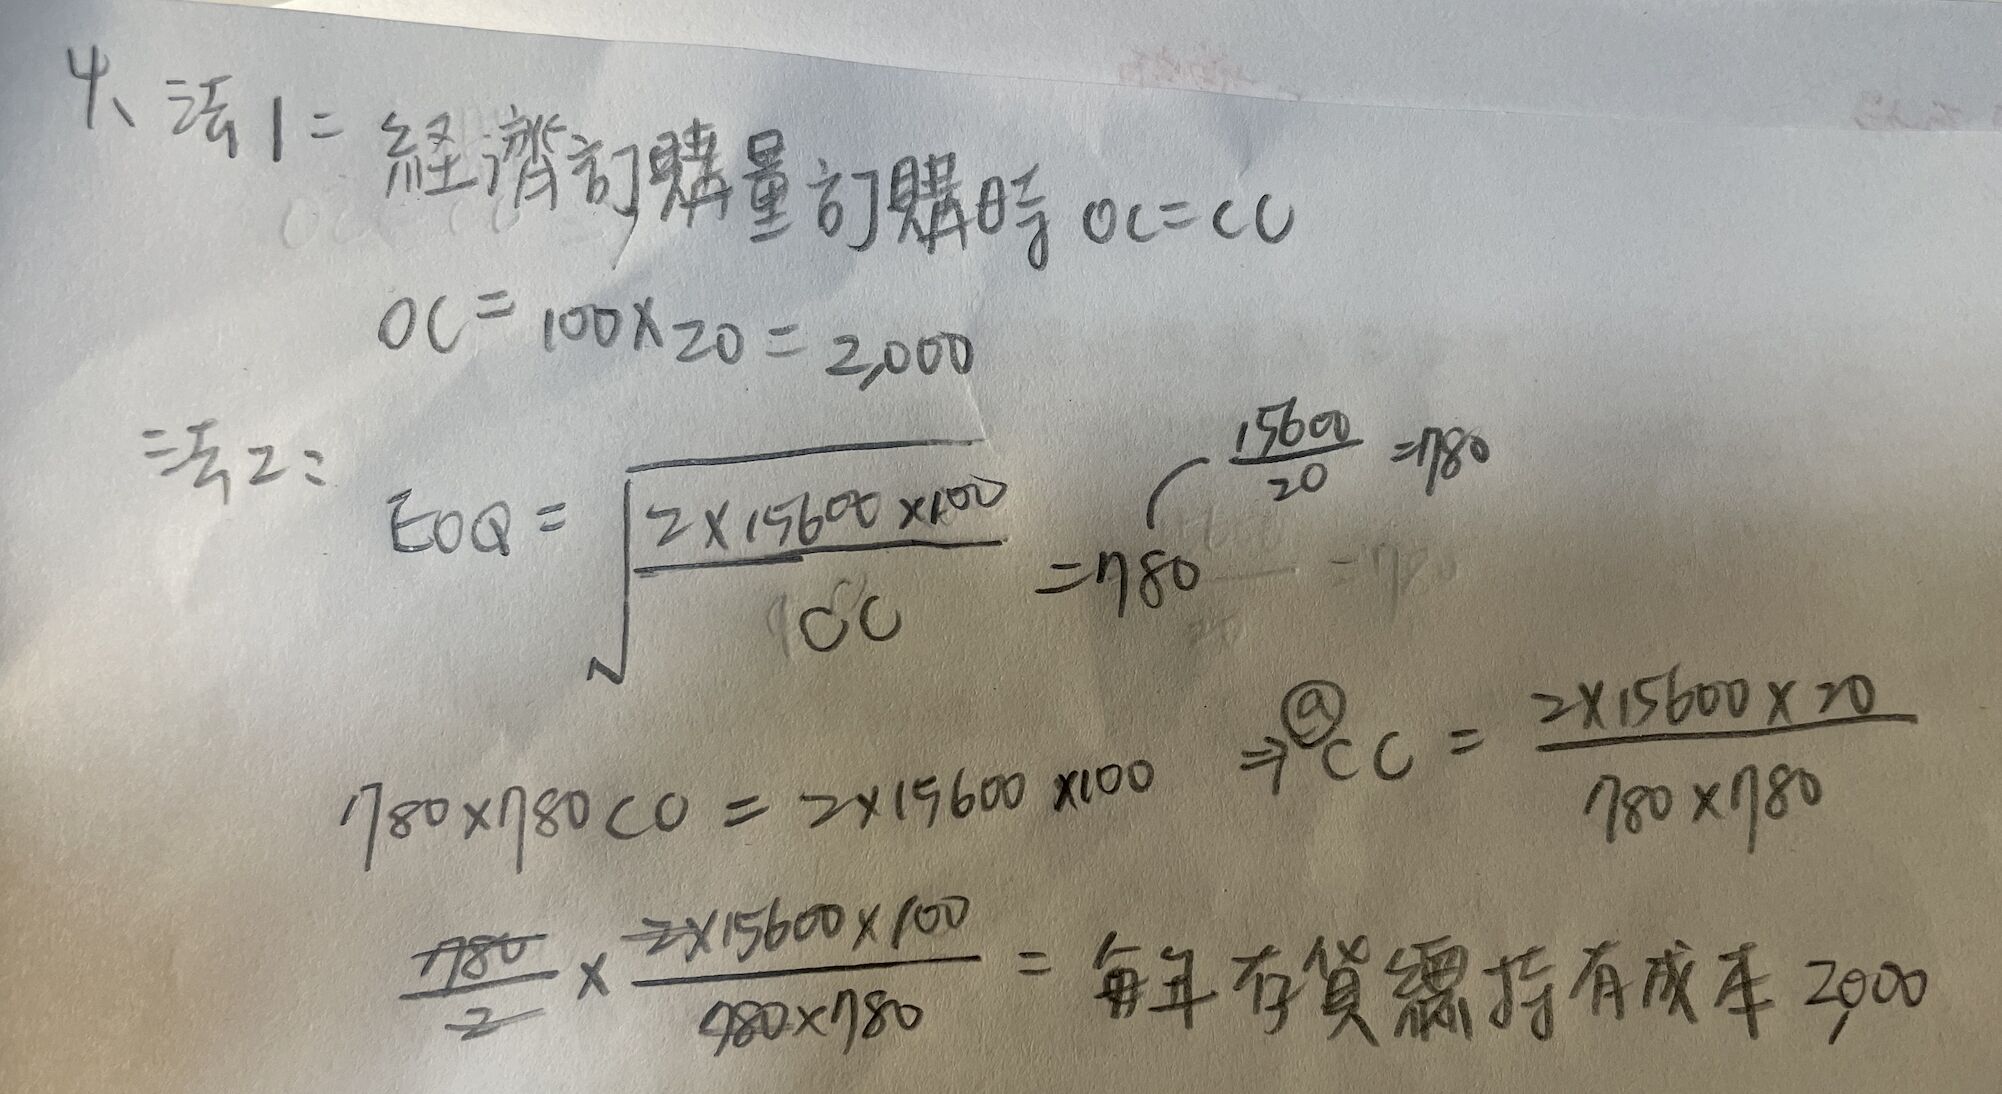 4、法1= 経濟訂購量訂購時 OC=CC
OC = 100×20 = 2,000
法2:
15600/20 =780
EOQ = √(2×15600×100/CC) =780
780×780CC = 2×15600×100 ⇒ @CC = 2×15600×20/780×780
780/2 × 2×15600×100/780×780 = 每年存貨總持有成本2,000